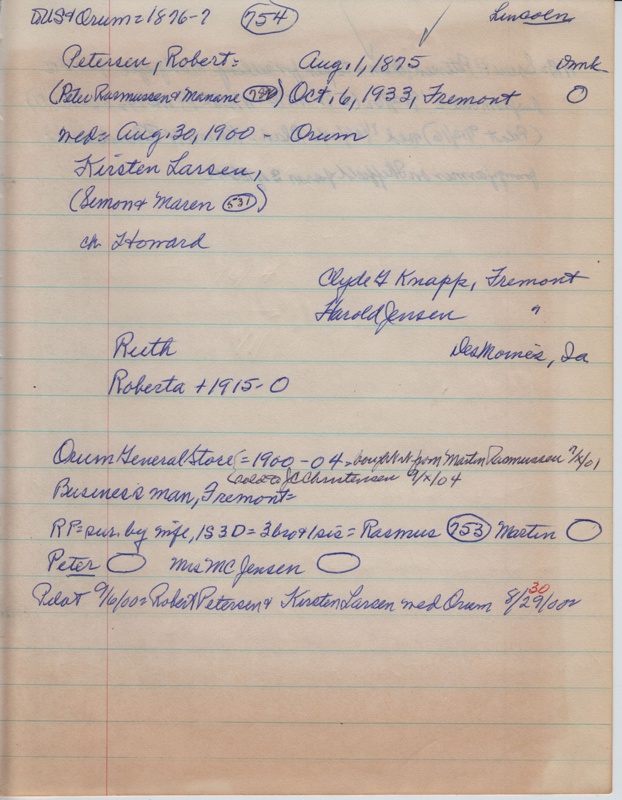 US & Orum = 1876-7 754 Lincoln
Petersen, Robert = Aug. 1, 1875 Dmk
(Peter Rasmussen & Mariane) Oct. 6, 1933, Fremont O
med = Aug. 30, 1900 - Orum
Kirsten Larsen,
(Simon & Maren 531)
ch Howard
Clyde G Knapp, Fremont
Harold Jensen "
Ruth Des Moines, Ia
Roberta +1915 - O
Orum General Store = 1900-04 = bought it from Martin Rasmussen 9/X/01
(sold to JC Christensen 9/X/04
Business man, Fremont =
RP = sur. by wife, 1S 3D = 3 bro & 1 sis = Rasmus 753 Martin
Peter Mrs MC Jensen
30
Pilot 9/6/00 = Robert Petersen & Kirsten Larsen med Orum 8/29/00